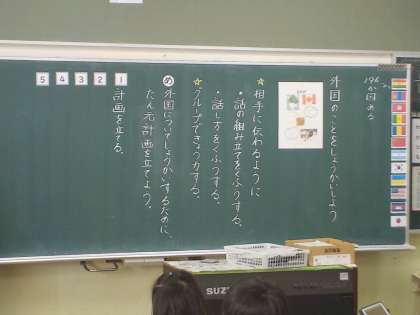 196か国ある
外国のことをしょうかいしよう
☆相手に伝わるように
・話の組み立てをくふうする。
・話し方をくふうする。
☆グループできょう力する。
め 外国についてしょうかいするために、
たん元計画を立てよう。
1 計画を立てる。
2
3
4
5
SUZ